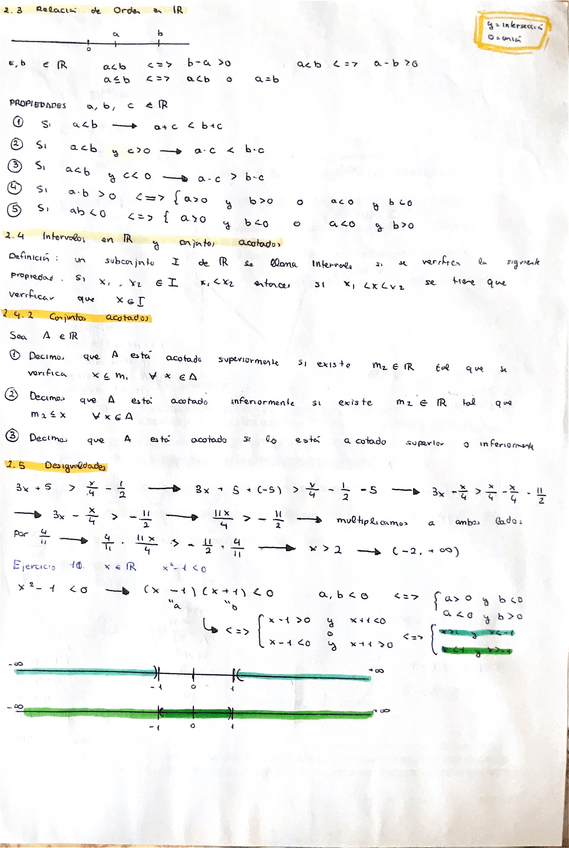 2.3 Relación de Orden en ℝ
y = intersección
o = unión
a b
0
a, b ∈ ℝ a<b <=> b-a >0 a<b <=> a-b >0
a≤b <=> a<b o a=b
PROPIEDADES a, b, c ∈ ℝ
① Si a<b → a+c < b+c
② Si a<b y c>0 → a·c < b·c
③ Si a<b y c<0 → a·c > b·c
④ Si a·b >0 <=> { a>0 y b>0 o a<0 y b<0
⑤ Si ab<0 <=> { a>0 y b<0 o a<0 y b>0
2.4 Intervalos en ℝ y conjuntos acotados
Definición: un subconjunto I de ℝ se llama Intervalo si se verifica la siguiente
propiedad. Si x₁, x₂ ∈ I x₁<x₂ entonces si x₁ <x<x₂ se tiene que
verificar que x∈I
2.4.2 Conjuntos acotados
Sea A ∈ ℝ
① Decimos que A está acotado superiormente si existe m₂ ∈ ℝ tal que se
verifica x ≤ m₁ ∀ x ∈ A
② Decimos que A está acotado inferiormente si existe m₂ ∈ ℝ tal que
m₂ ≤ x ∀ x ∈ A
③ Decimos que A está acotado si lo está acotado superior o inferiormente
2.5 Desigualdades
3x + 5 > x/4 - 1/2 → 3x + 5 + (-5) > x/4 - 1/2 - 5 → 3x - x/4 > x/4 - x/4 - 11/2
→ 3x - x/4 > - 11/2 → 11x/4 > - 11/2 → multiplicamos a ambos lados
por 4/11 → 4/11 · 11x/4 > - 11/2 · 4/11 → x > 2 → (-2, +∞)
Ejercicio 10. x ∈ ℝ x²-1 <0
x² - 1 < 0 → (x - 1) (x + 1) < 0 a, b < 0 <=> { a>0 y b<0
"a "b a<0 y b>0
<=> { x-1>0 y x+1<0 <=> { x>1 y x<-1
o
x-1<0 y x+1>0 x<1 y x>-1
-∞ -1 0 1 +∞
-∞ -1 0 1 +∞